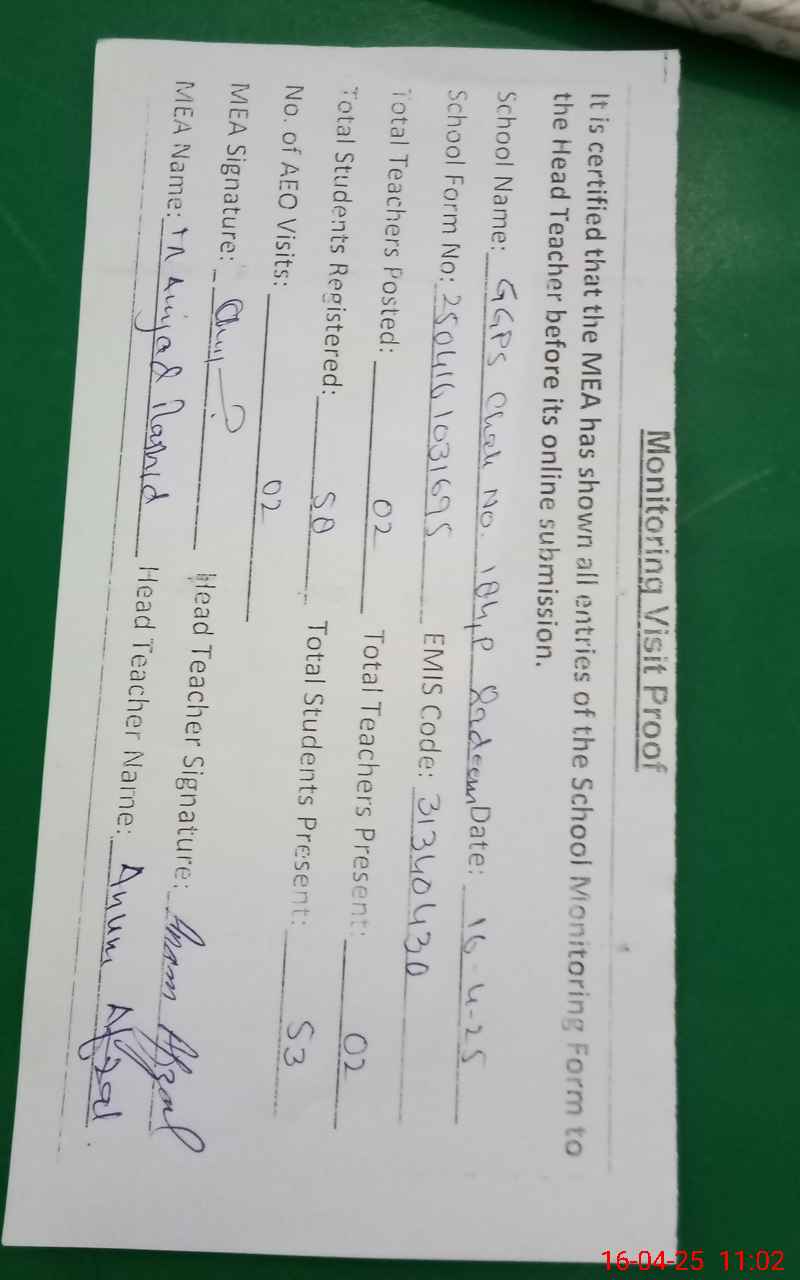 Monitoring Visit Proof
It is certified that the MEA has shown all entries of the School Monitoring Form to
the Head Teacher before its online submission.
School Name: GGPS Chak No. 184/P Qadeem Date: 16-4-25
School Form No: 2504161031695 EMIS Code: 31340430
Total Teachers Posted: 02 Total Teachers Present: 02
Total Students Registered: 58 Total Students Present: 53
No. of AEO Visits: 02
MEA Signature: Head Teacher Signature: Anam Afzal
MEA Name: Amjad Rashid Head Teacher Name: Anum Afzal.
16-04-25 11:02